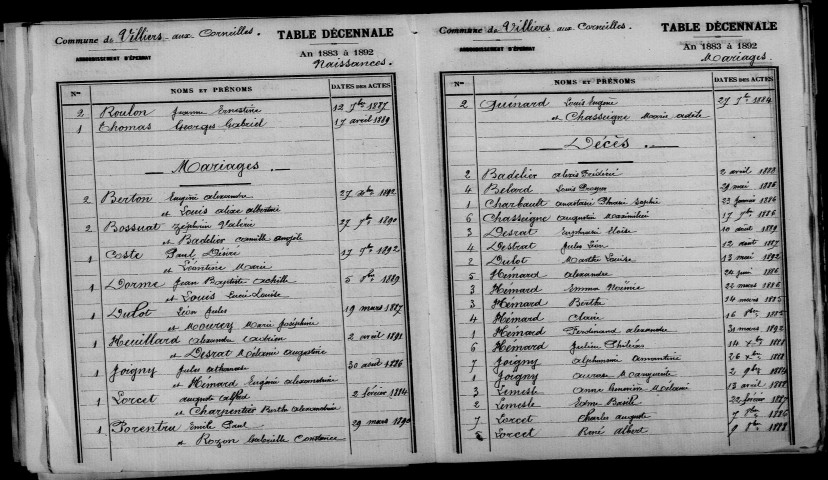 Commune de Villiers-aux-Corneilles. TABLE DÉCENNALE
ARRONDISSEMENT D'ÉPERNAY An 1883 à 1892
Naissances.
Nos NOMS ET PRÉNOMS DATES DES ACTES
2 Roulon Jeanne Ernestine 12 7bre 1887
1 Thomas Georges Gabriel 17 avril 1889
Mariages
2 Berton Eugène Alexandre 27 1892
et Louis Albertine
2 Bossuat Zéphirin Valérie 27 1890
et Badelier Camille Angèle
1 Coste Paul Désiré 17 1892
et Léontine Marie
1 Dorme Jean Baptiste Achille 5 1889
et Louis Lucie Louise
1 Dulot Léon Jules 19 mars 1887
et Marie Joséphine
1 Heuillard Alexandre Adrien 2 avril 1891
et Desrat Mélanie Augustine
1 Joigny Jules Athanase 30 août 1886
et Hémard Eugénie Alexandrine
1 Lorcet Auguste Alfred 2 février 1884
et Charpentier Berthe Alexandrine
1 Porentru Emile Paul 29 mars 1890
et Rozon Gabrielle Constance
Commune de Villiers aux Corneilles. TABLE DÉCENNALE
ARRONDISSEMENT D'ÉPERNAY An 1883 à 1892
Mariages.
Nos NOMS ET PRÉNOMS DATES DES ACTES
2 Guénard Louis Eugène 27 7bre 1884
et Chasseigne Marie Adèle
Décès
2 Badelier Alexis Frédéric 2 avril 1888
4 Belard Louis Prosper 29 mai 1886
1 Charbault Anastasie Sophie 23 février 1884
6 Chasseigne Augustin Maximilien 17 1886
3 Desrat Euphrasie Eloïse 10 août 1889
4 Desrat Jules Léon 12 août 1887
2 Dulot Marthe Louise 13 mai 1892
5 Hémard Alexandre 24 juin 1886
3 Hémard Emma Noémie 22 mars 1886
3 Hémard Berthe 14 mars 1885
4 Hémard Claire 16 1885
1 Hémard Ferdinand Alexandre 31 mars 1892
6 Hémard Julien 14 1888
7 Joigny Alphonsine Amandine 26 1888
1 Joigny Aurore Marguerite 2 9bre 1884
3 Lemesle Anne Mélanie 13 avril 1888
2 Lemesle Edme Basile 22 février 1887
7 Lorcet Charles Auguste 7 1886
Lorcet René Albert 9 1888